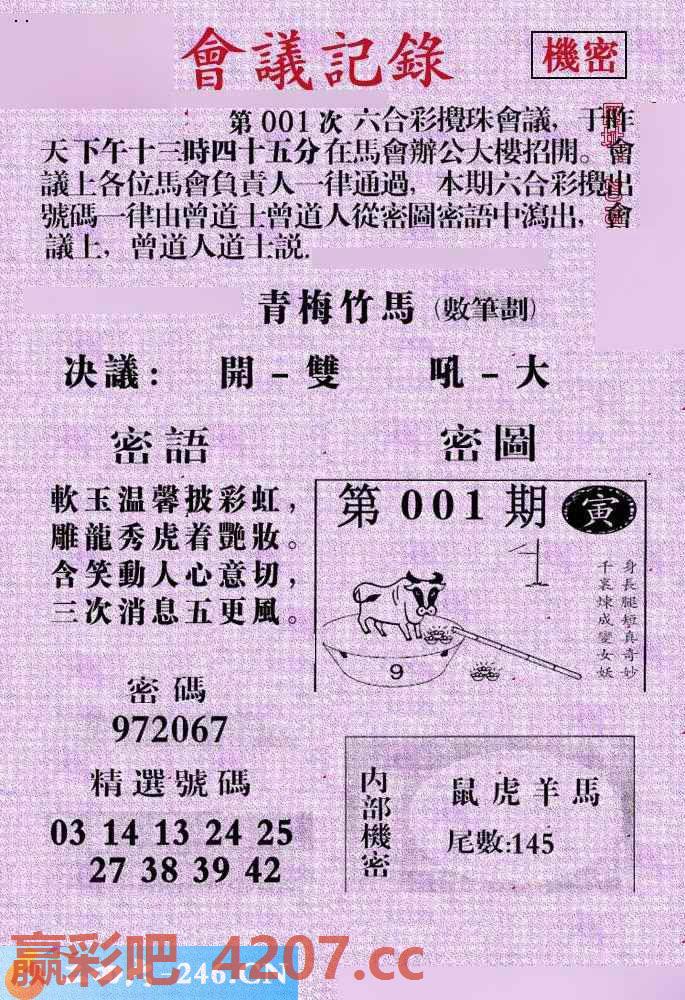 會議記錄
機密
第001次 六合彩攪珠會議，于昨
天下午十三時四十五分在馬會辦公大樓招開。會
議上各位馬會負責人一律通過，本期六合彩攪出
號碼一律由曾道士曾道人從密圖密語中瀉出，會
議上，曾道人道士説.
青梅竹馬（數筆劃）
决議：開－雙 吼－大
密語
軟玉温馨披彩虹，
雕龍秀虎着艷妝。
含笑動人心意切，
三次消息五更風。
密圖
第001期 寅
身長腿短真奇妙
千裏煉成變女妖
9
密碼
972067
精選號碼
03 14 13 24 25
27 38 39 42
内部機密
鼠虎羊馬
尾數:145
赢彩吧.4207.cc
246.CN